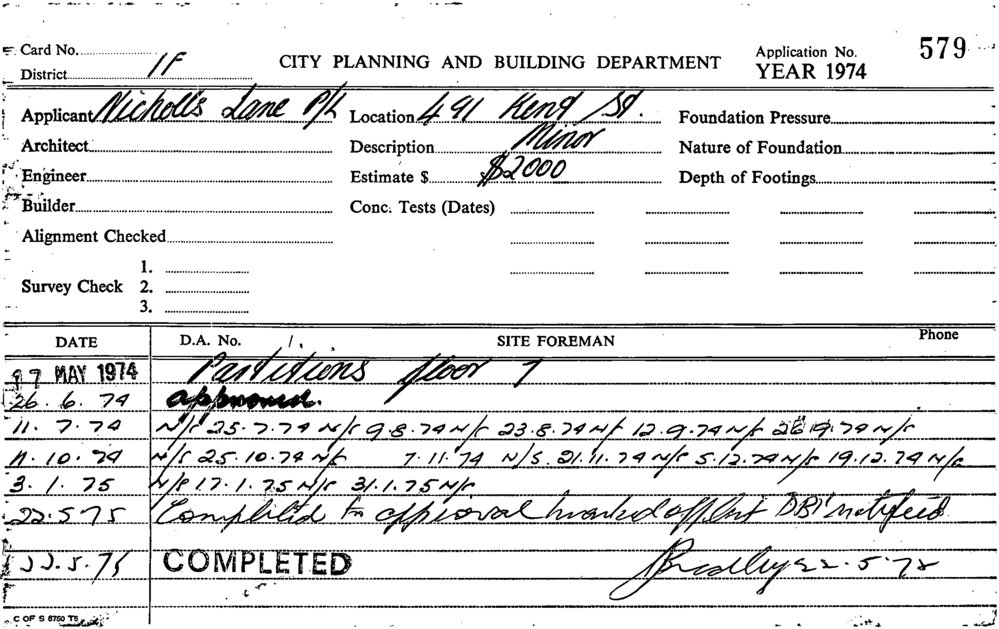 Card No. Application No. 579
District 1F CITY PLANNING AND BUILDING DEPARTMENT YEAR 1974
Applicant Nicholls Lane P/L Location 491 Kent St. Foundation Pressure
Architect Description Minor Nature of Foundation
Engineer Estimate $ $2000 Depth of Footings
Builder Conc. Tests (Dates)
Alignment Checked
1.
Survey Check 2.
3.
DATE D.A. No. SITE FOREMAN Phone
MAY 1974 Partitions floor 7
26.6.74 approved.
11.7.74 N/S 25.7.74 N/S 9.8.74 N/S 23.8.74 N/S 12.9.74 N/S 26.9.74 N/S
11.10.74 N/S 25.10.74 N/S 7.11.74 N/S. 21.11.74 N/S 5.12.74 N/S 19.12.74 N/S
3.1.75 N/S 17.1.75 N/S 31.1.75 N/S
22.5.75 Completed to approval marked off DBI notified
22.5.75 COMPLETED Bradley 22.5.75
C OF S 6750 T5